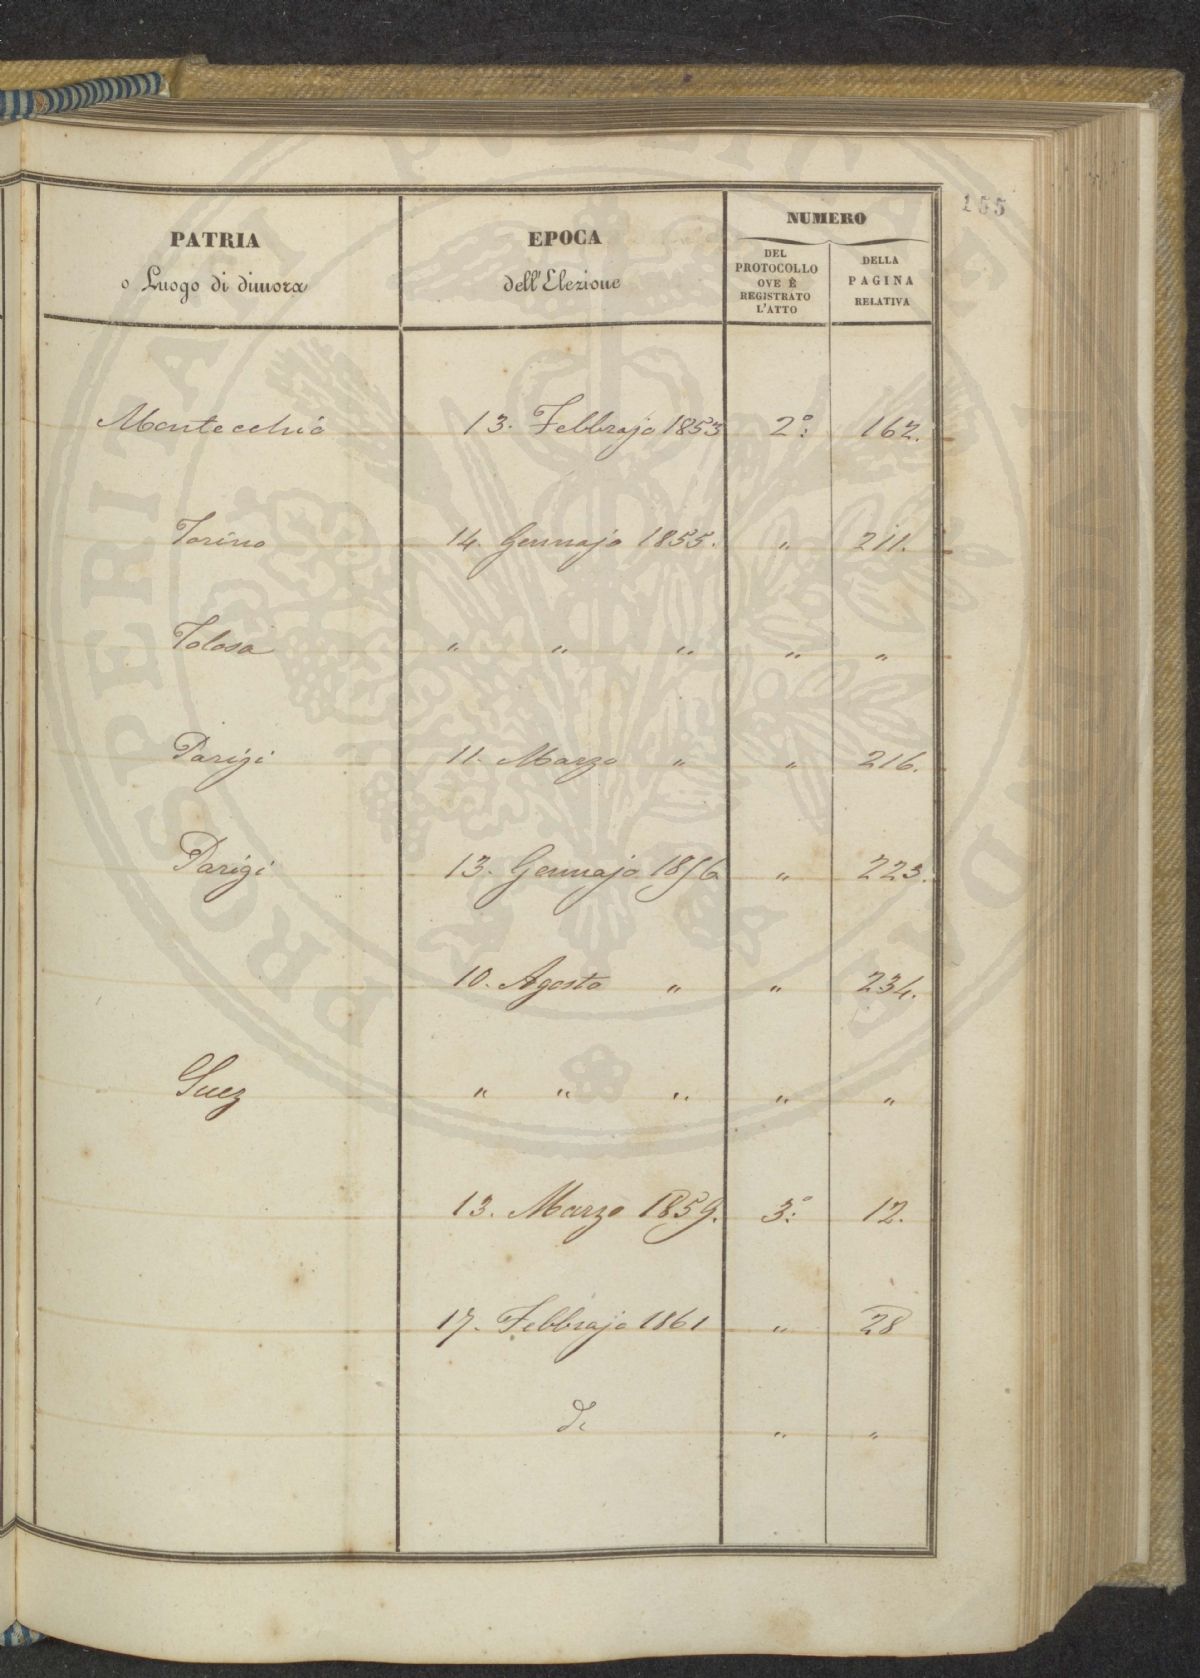 155
PATRIA
o Luogo di dimora
EPOCA
dell'Elezione
NUMERO
DEL
PROTOCOLLO
OVE È
REGISTRATO
L'ATTO
DELLA
PAGINA
RELATIVA
Montecchio 13. Febbrajo 1853 2º: 162.
Torino 14. Gennajo 1855. " 211.
Tolosa " " " " "
Parigi 11. Marzo " " 216.
Parigi 13. Gennajo 1856 " 223.
10. Agosto " " 234.
Suez " " " " "
13. Marzo 1859. 3º: 12.
17. Febbrajo 1861 " 28
di " "
PROSPERITATI PUBLICAE